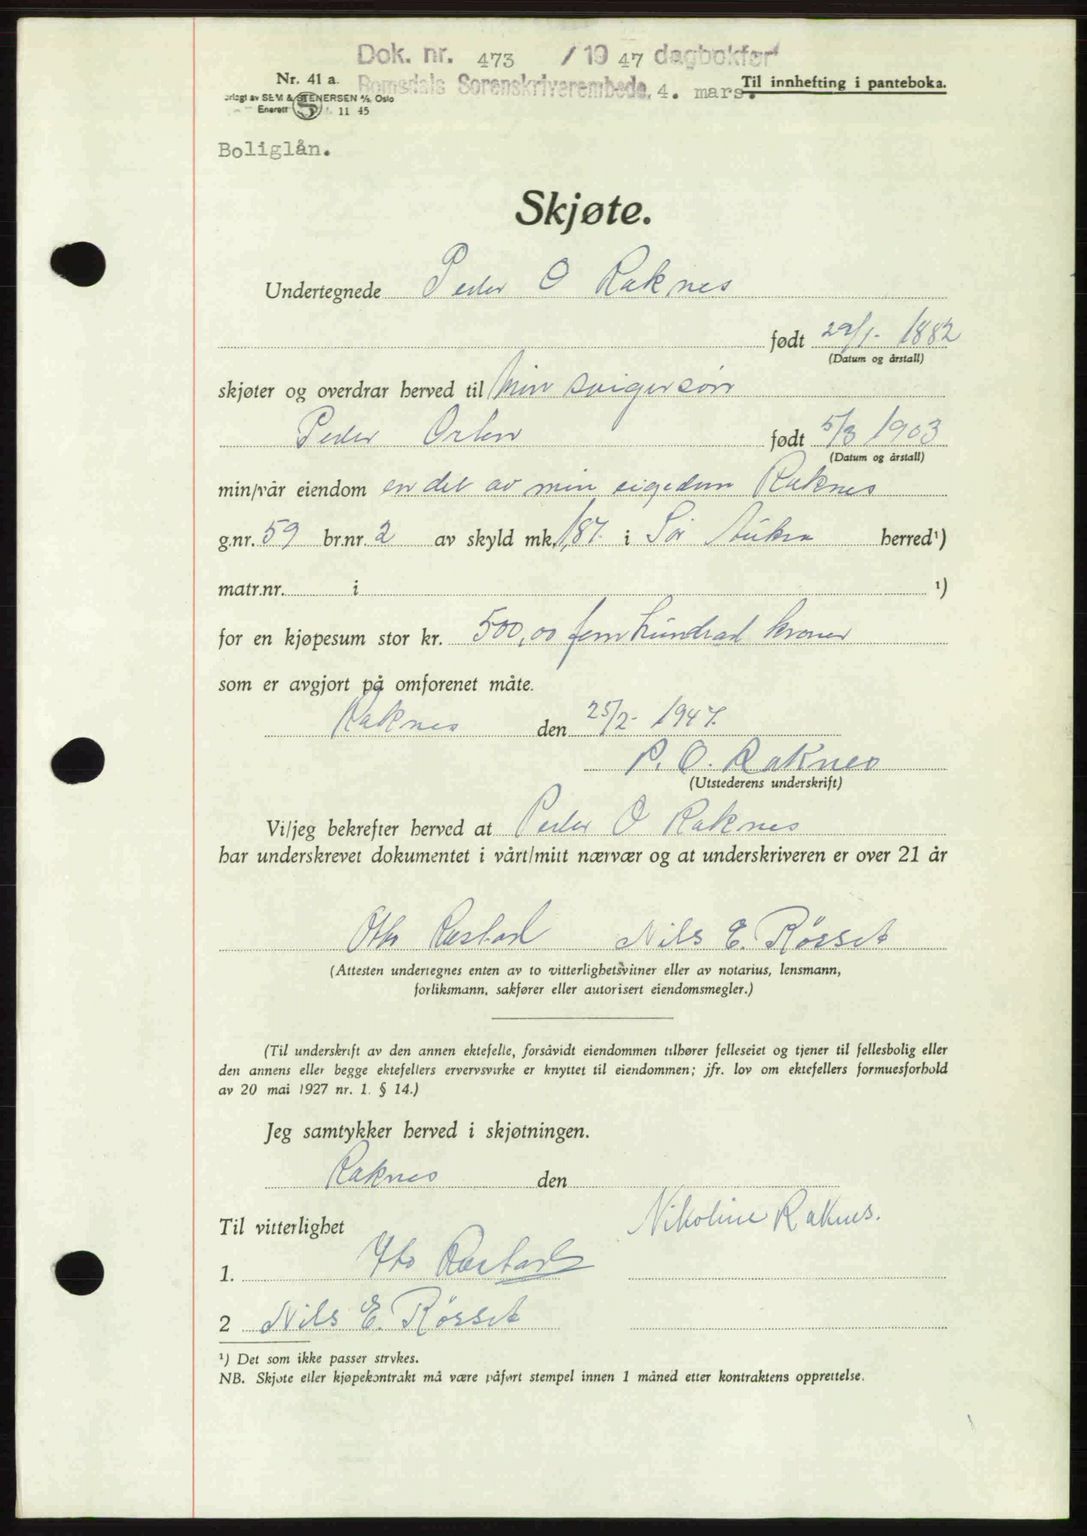 Dok. nr. 473 / 1947 dagbokført
Nr. 41 a.
Romsdals Sorenskriverembede, 4. mars.
Til innhefting i panteboka.
SEM & STENERSEN A/S, Oslo
Enerett 11 45
Boliglån.
Skjøte.
Undertegnede Peder O Raknes
født 29/1- 1882
(Datum og årstall)
skjøter og overdrar herved til Min svigersøn
Peder født 5/3 1903
(Datum og årstall)
min/vår eiendom en del av min eigedom Raknes
g.nr. 59 br.nr. 2 av skyld mk. 1,87. i Sør Aukra herred¹)
matr.nr. i ¹)
for en kjøpesum stor kr. 500,00 fem hundrad kroner
som er avgjort på omforenet måte.
Raknes den 25/2- 1947.
P. O. Raknes
(Utstederens underskrift)
Vi/jeg bekrefter herved at Peder O Raknes
har underskrevet dokumentet i vårt/mitt nærvær og at underskriveren er over 21 år
Otto Rastad Nils E. Røsset
(Attesten undertegnes enten av to vitterlighetsvitner eller av notarius, lensmann,
forliksmann, sakfører eller autorisert eiendomsmegler.)
(Til underskrift av den annen ektefelle, forsåvidt eiendommen tilhører felleseiet og tjener til fellesbolig eller
den annens eller begge ektefellers ervervsvirke er knyttet til eiendommen; jfr. lov om ektefellers formuesforhold
av 20 mai 1927 nr. 1. § 14.)
Jeg samtykker herved i skjøtningen.
Raknes den
Nikoline Raknes.
Til vitterlighet
1. Otto Rastad
2 Nils E. Røsset
¹) Det som ikke passer strykes.
NB. Skjøte eller kjøpekontrakt må være påført stempel innen 1 måned etter kontraktens opprettelse.